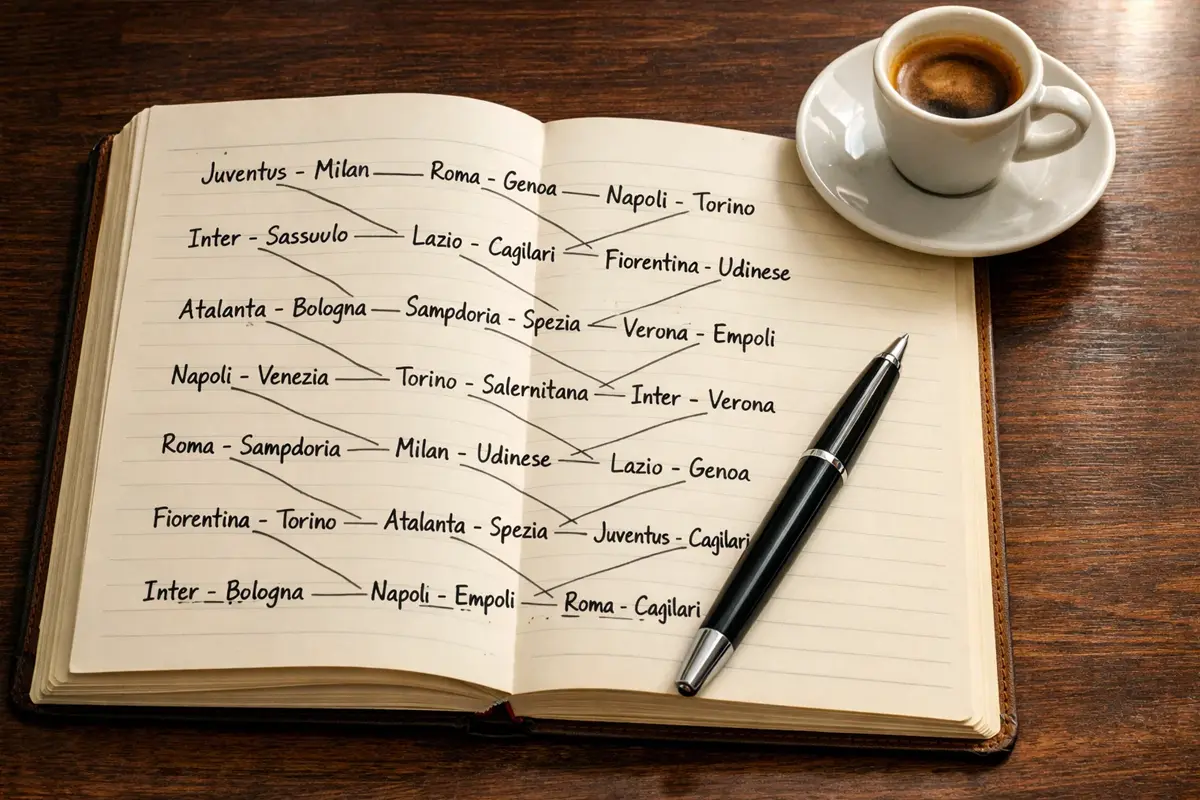 Juventus - Milan — Roma - Genoa — Napoli - Torino
Inter - Sassuulo — Lazio - Cagilari — Fiorentina - Udinese
Atalanta - Bologna — Sampdoria - Spezia — Verona - Empoli
Napoli - Venezia — Torino - Salernitana — Inter - Verona
Roma - Sampdoria — Milan - Udinese — Lazio - Genoa
Fiorentina - Torino — Atalanta - Spezia — Juventus - Cagilari
Inter - Bologna — Napoli - Empoli — Roma - Cagilari